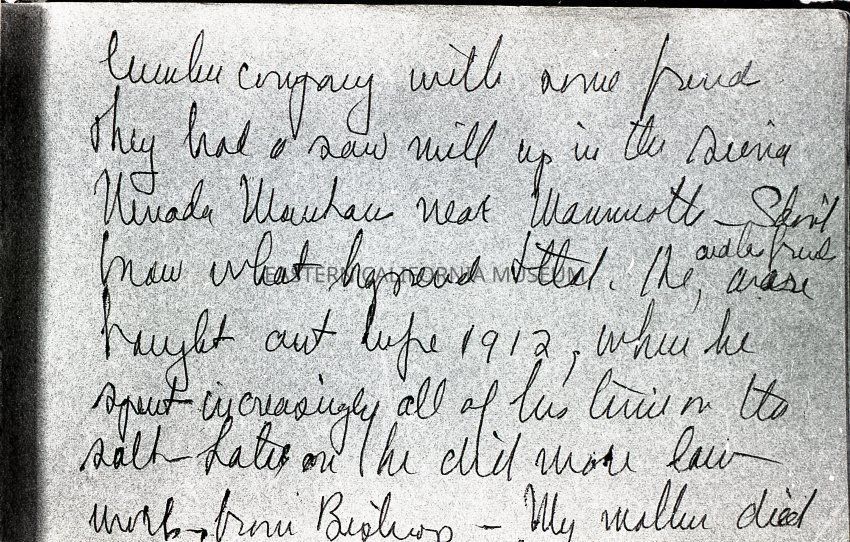 lumber company with some friend
They had a saw mill up in the Sierra
Nevada Mountains near Mammoth – I don't
know what happened to that. He, and a friend
EASTERN CALIFORNIA MUSEUM
bought out before 1912, when he
spent increasingly all of his time on the
salt – Later on he did more law
work, from Bishop – My mother died